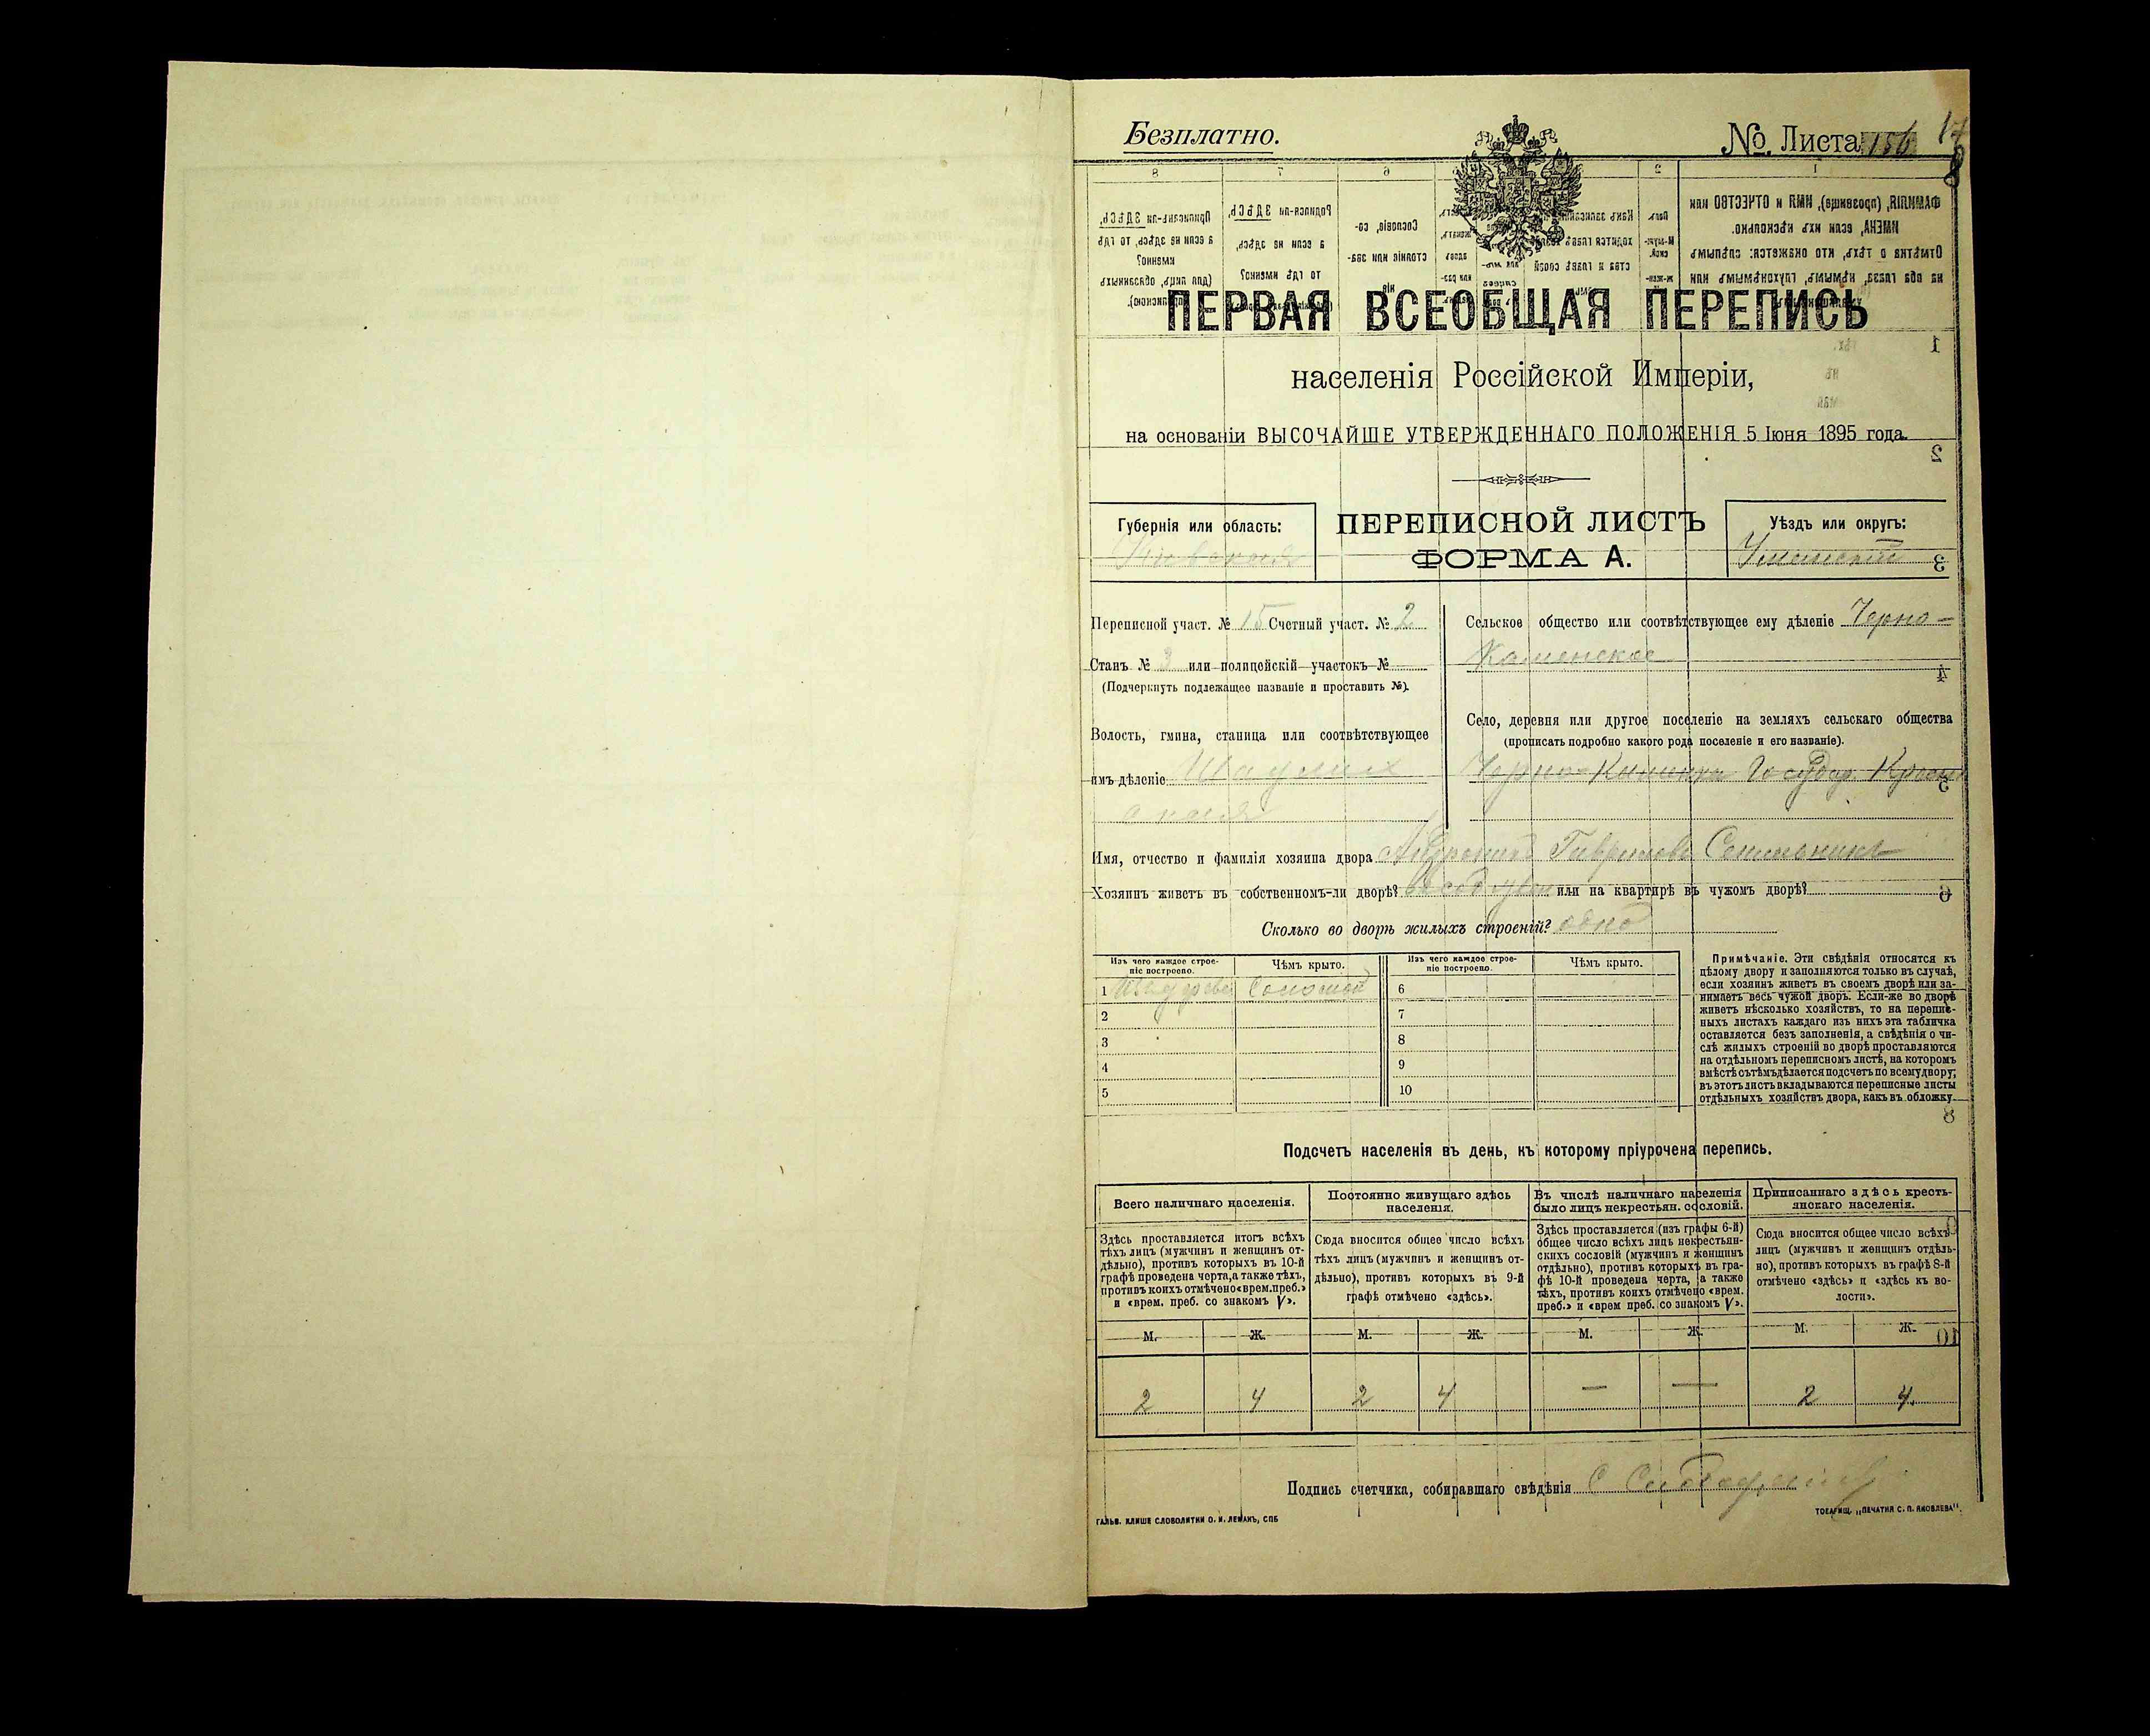 Безплатно.
№ Листа 156
17
ПЕРВАЯ ВСЕОБЩАЯ ПЕРЕПИСЬ
населенія Россійской Имперіи,
на основаніи ВЫСОЧАЙШЕ УТВЕРЖДЕННАГО ПОЛОЖЕНІЯ 5 Іюня 1895 года.
Губернія или область:
Кіевская
ПЕРЕПИСНОЙ ЛИСТЪ
ФОРМА А.
Уѣздъ или округъ:
Уманскій
Переписной участ. № 15 Счетный участ. № 2
Станъ № 3 или полицейскій участокъ №
(Подчеркнуть подлежащее названіе и проставить №).
Волость, гмина, станица или соотвѣтствующее
имъ дѣленіе
Сельское общество или соотвѣтствующее ему дѣленіе Черно-
Каменское
Село, деревня или другое поселеніе на земляхъ сельскаго общества
(прописать подробно какого рода поселеніе и его названіе).
Черно-Каменка Государ.
Имя, отчество и фамилія хозяина двора Гавриловъ
Хозяинъ живетъ въ собственномъ-ли дворѣ? или на квартирѣ въ чужомъ дворѣ?
Сколько во дворѣ жилыхъ строеній? одно
Изъ чего каждое строе-
ніе построено.
Чѣмъ крыто.
Изъ чего каждое строе-
ніе построено.
Чѣмъ крыто.
1 Соломой
2
3
4
5
6
7
8
9
10
Примѣчаніе. Эти свѣдѣнія относятся къ
цѣлому двору и заполняются только въ случаѣ,
если хозяинъ живетъ въ своемъ дворѣ или за-
нимаетъ весь чужой дворъ. Если-же во дворѣ
живетъ нѣсколько хозяйствъ, то на перепис-
ныхъ листахъ каждаго изъ нихъ эта табличка
оставляется безъ заполненія, а свѣдѣнія о чи-
слѣ жилыхъ строеній во дворѣ проставляются
на отдѣльномъ переписномъ листѣ, на которомъ
вмѣстѣ съ тѣмъ дѣлается подсчетъ по всему двору;
въ этотъ листъ вкладываются переписные листы
отдѣльныхъ хозяйствъ двора, какъ въ обложку.
Подсчетъ населенія въ день, къ которому пріурочена перепись.
Всего наличнаго населенія.
Здѣсь проставляется итогъ всѣхъ
тѣхъ лицъ (мужчинъ и женщинъ от-
дѣльно), противъ которыхъ въ 10-й
графѣ проведена черта, а также тѣхъ,
противъ коихъ отмѣчено «врем. преб.»
и «врем. преб. со знакомъ V».
Постоянно живущаго здѣсь
населенія.
Сюда вносится общее число всѣхъ
тѣхъ лицъ (мужчинъ и женщинъ от-
дѣльно), противъ которыхъ въ 9-й
графѣ отмѣчено «здѣсь».
Въ числѣ наличнаго населенія
было лицъ некрестьян. сословій.
Здѣсь проставляется (изъ графы 6-й)
общее число всѣхъ лицъ некрестьян-
скихъ сословій (мужчинъ и женщинъ
отдѣльно), противъ которыхъ въ гра-
фѣ 10-й проведена черта, а также
тѣхъ, противъ коихъ отмѣчено «врем.
преб.» и «врем преб. со знакомъ V».
Приписаннаго здѣсь кресть-
янскаго населенія.
Сюда вносится общее число всѣхъ
лицъ (мужчинъ и женщинъ отдѣль-
но), противъ которыхъ въ графѣ 8-й
отмѣчено «здѣсь» и «здѣсь къ во-
лости».
М. Ж. М. Ж. М. Ж. М. Ж.
2 4 2 4 — — 2 4.
Подпись счетчика, собиравшаго свѣдѣнія
ГАЛЬВ. КЛИШЕ СЛОВОЛИТНИ О. И. ЛЕМАНЪ, СПБ
ТОВАРИЩ. „ПЕЧАТНЯ С. П. ЯКОВЛЕВА".